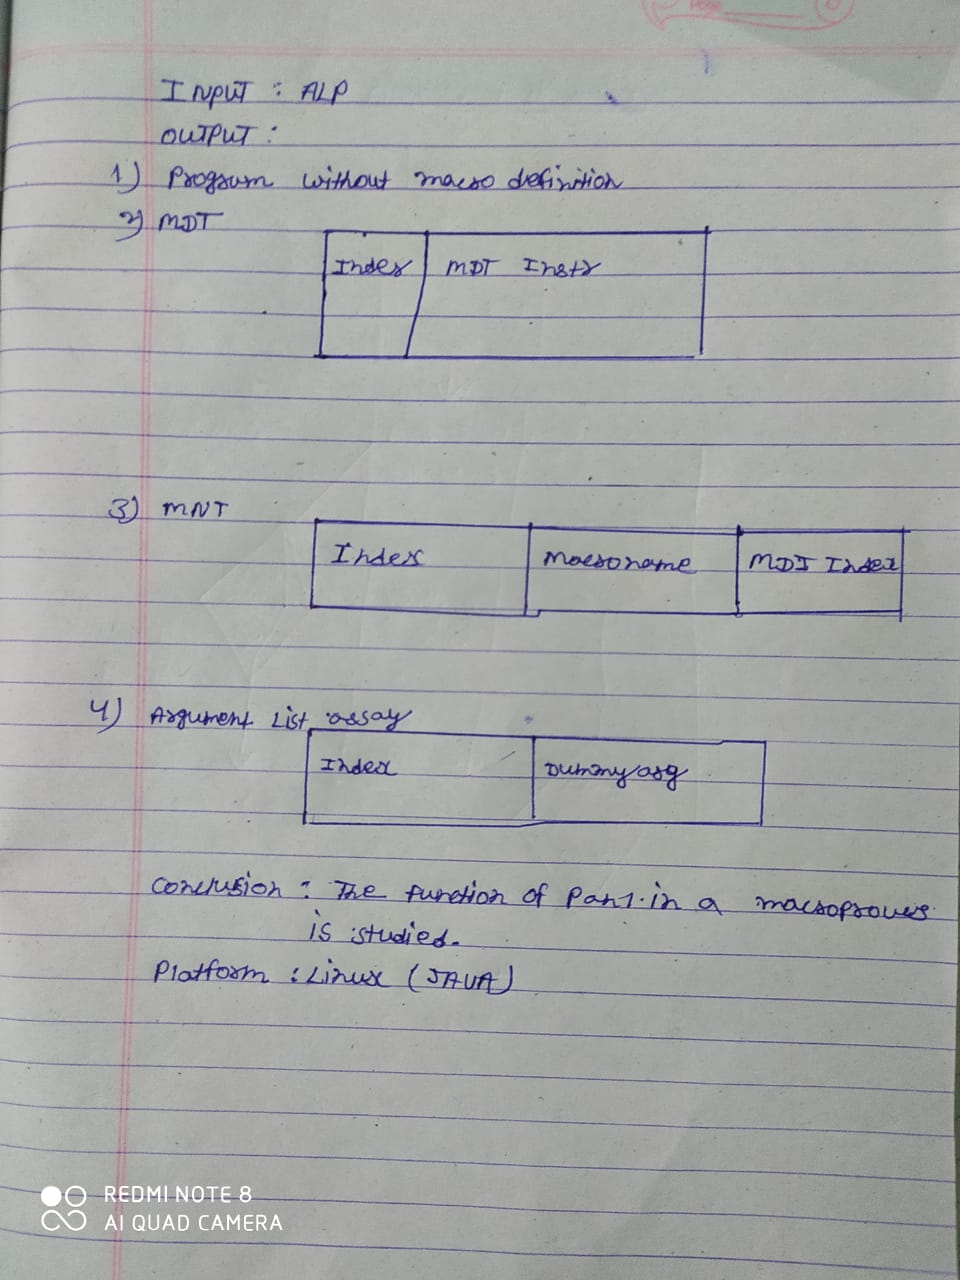 INPUT : ALP
OUTPUT :
1) Program without macro definition
2) MDT
Index MDT Instr
3) MNT
Index Macroname MDT Index
4) Argument List array
Index Dummy arg
Conclusion : The function of Pan1. in a macroprouers
is studied.
Platform : Linux (JAVA)
REDMI NOTE 8
AI QUAD CAMERA